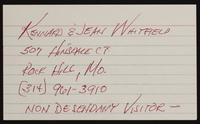 KENNARD & JEAN WHITFIELD
507 HINSDALE CT
ROCK HILL, MO.
(314) 961-3910
NON DESCENDANT VISITOR —